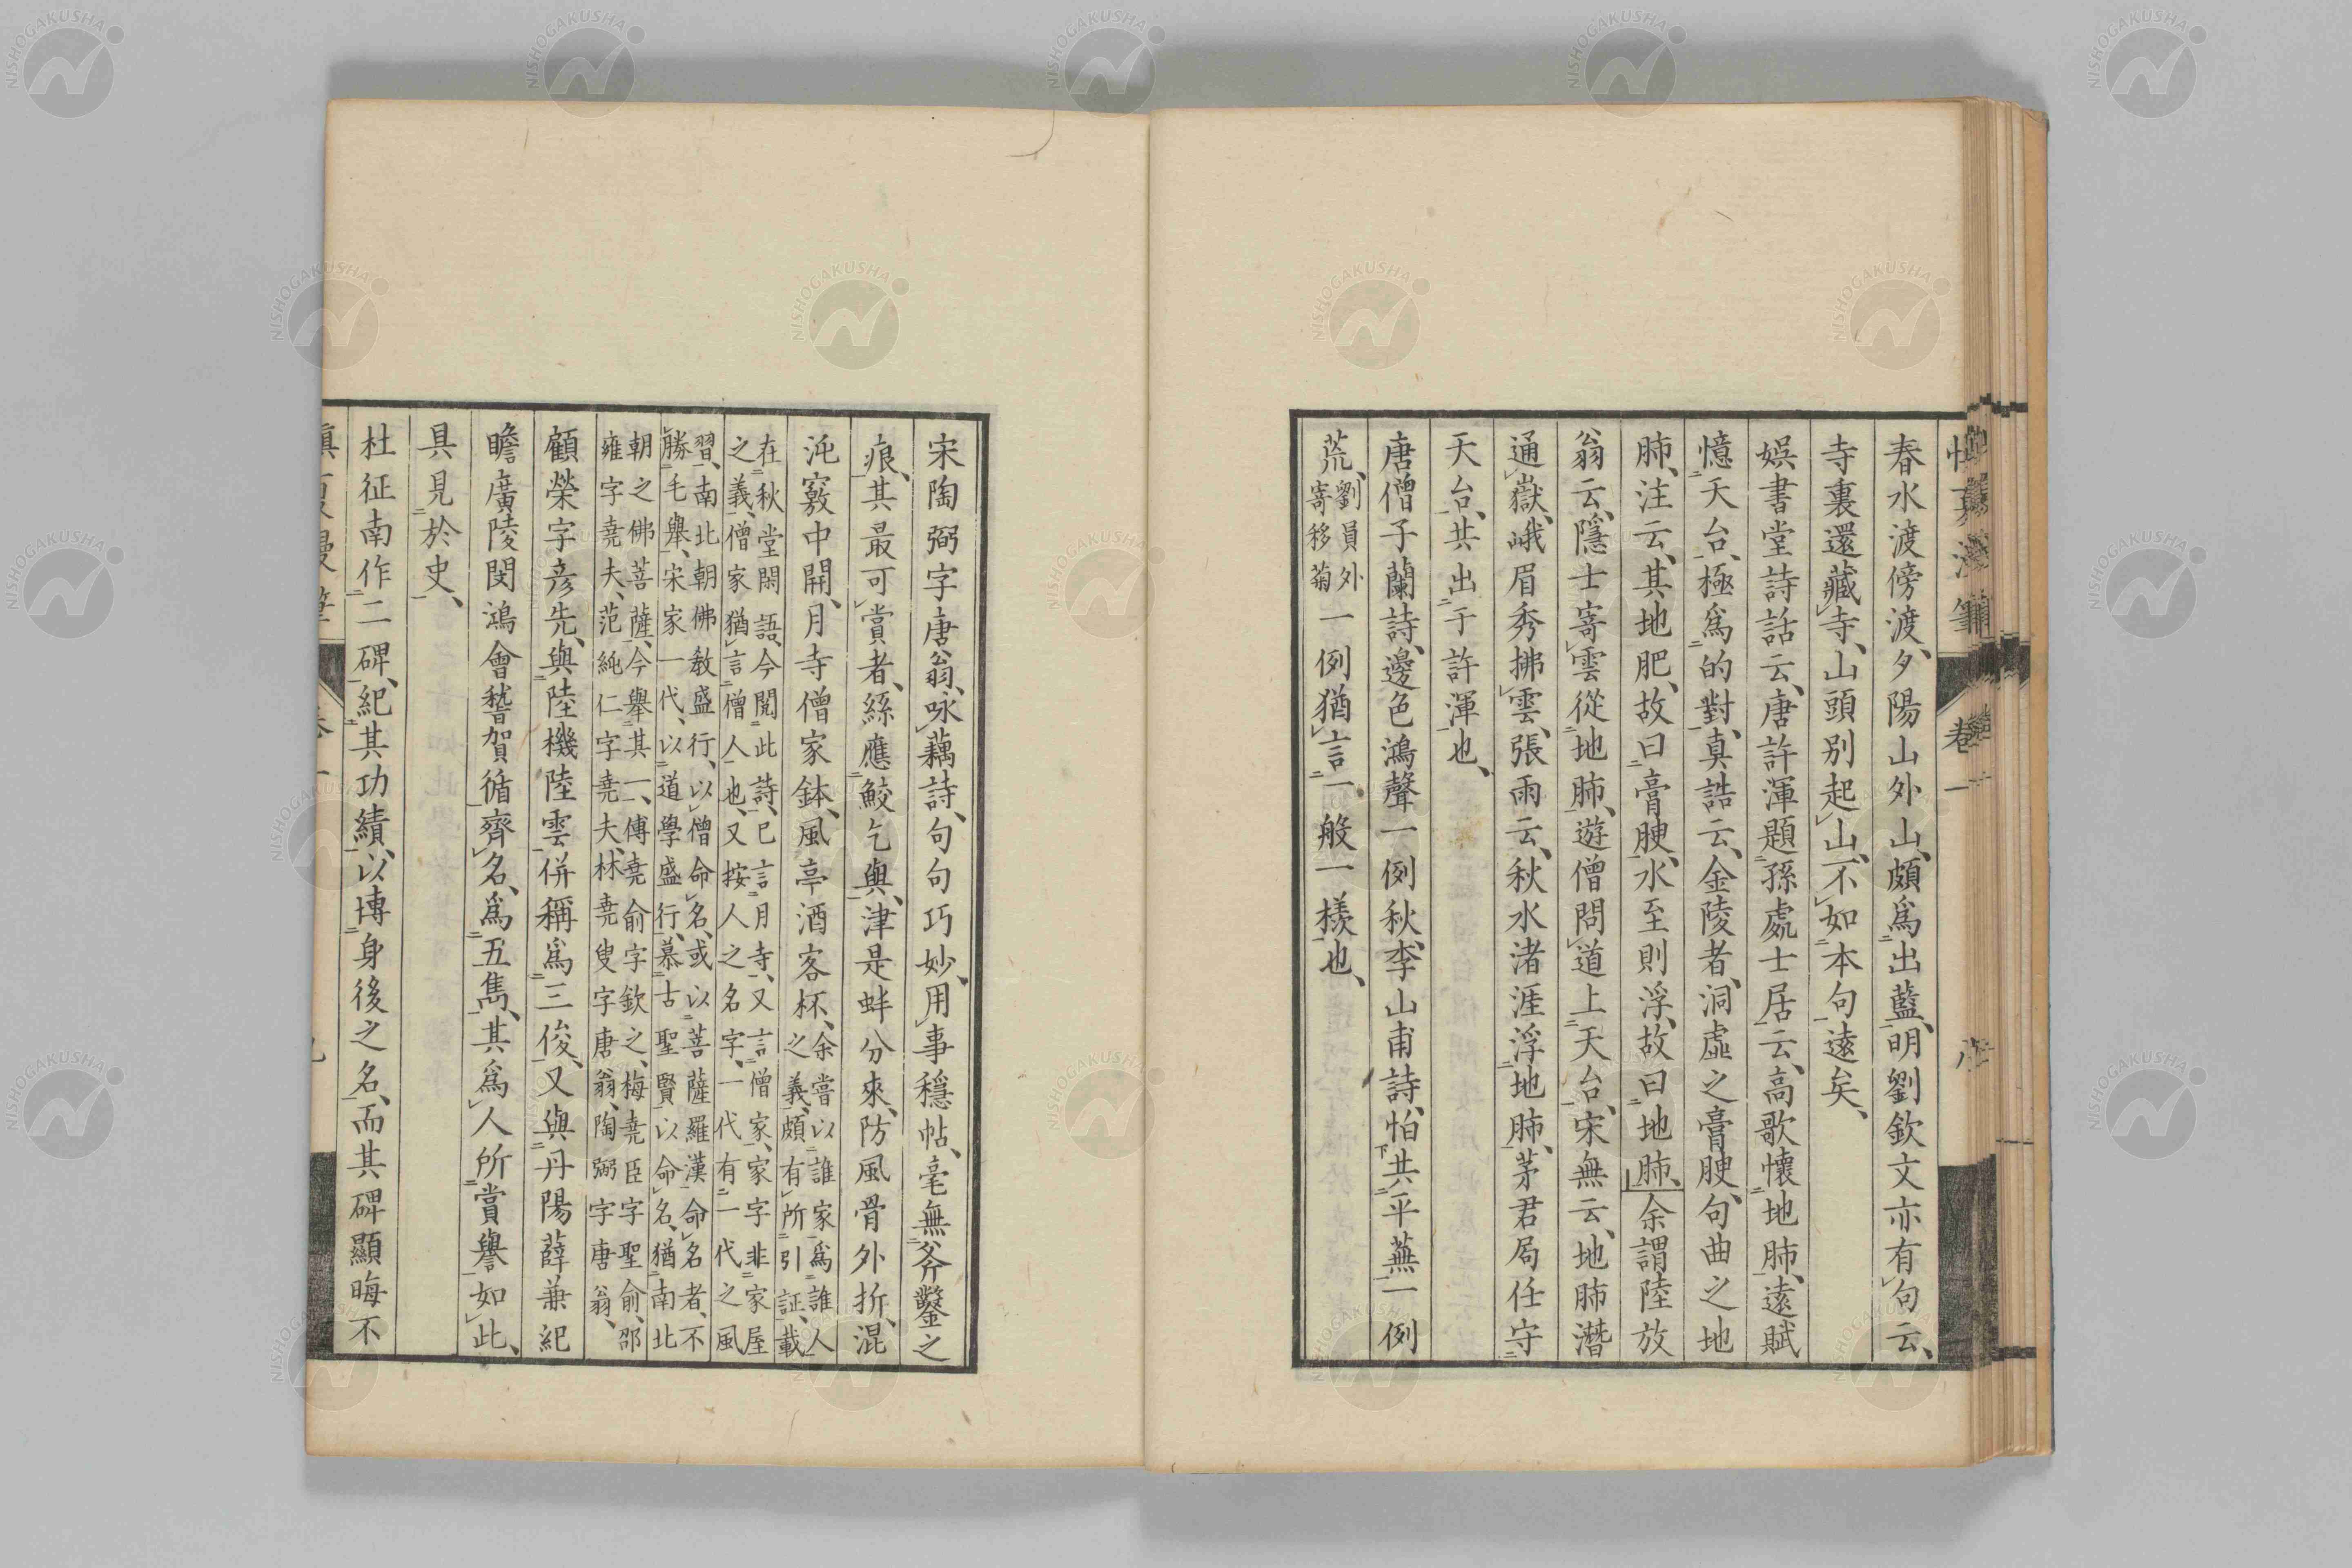 春水渡傍渡、夕陽山外山、頗爲出藍、明劉欽文亦有句云、
寺裏還藏寺、山頭別起山、不如本句遠矣、
娯書堂詩話云、唐許渾題孫處士居云、高歌懷地肺、遠賦
憶天台、極爲的對、真誥云、金陵者、洞虛之膏腴、句曲之地
肺、注云、其地肥、故曰膏腴、水至則浮、故曰地肺、余謂陸放
翁云、隱士寄雲從地肺、遊僧問道上天台、宋無云、地肺潛
通嶽、峨眉秀拂雲、張雨云、秋水渚涯浮地肺、茅君局任守
天台、共出于許渾也、
唐僧子蘭詩、邊色鴻聲一例秋、李山甫詩、怕共平蕪一例
荒、劉員外寄移菊一例猶言一般一樣也、
卷一
宋陶弼字唐翁、咏藕詩、句句巧妙、用事穩帖、毫無斧鑿之
痕、其最可賞者、絲應鮫乞與、津是蚌分來、防風骨外折、混
沌竅中開、月寺僧家鉢、風亭酒客杯、余嘗以誰家爲誰人
之義、頗有所引証、載
在秋堂閑語、今閲此詩、已言月寺、又言僧家、家字非家屋
之義、僧家猶言僧人也、又按人之名字、一代有一代之風
習、南北朝佛教盛行、以僧命名、或以菩薩羅漢命名者、不
勝毛舉、宋家一代、以道學盛行、慕古聖賢以命名、猶南北
朝之佛菩薩、今舉其一、傅堯俞字欽之、梅堯臣字聖俞、邵
雍字堯夫、范純仁字堯夫、林堯叟字唐翁、陶弼字唐翁、
顧榮字彥先、與陸機陸雲併稱爲三俊、又與丹陽薛兼紀
瞻廣陵閔鴻會稽賀循齊名、爲五雋、其爲人所賞譽如此、
具見於史、
杜征南作二碑、紀其功績、以博身後之名、而其碑顯晦不